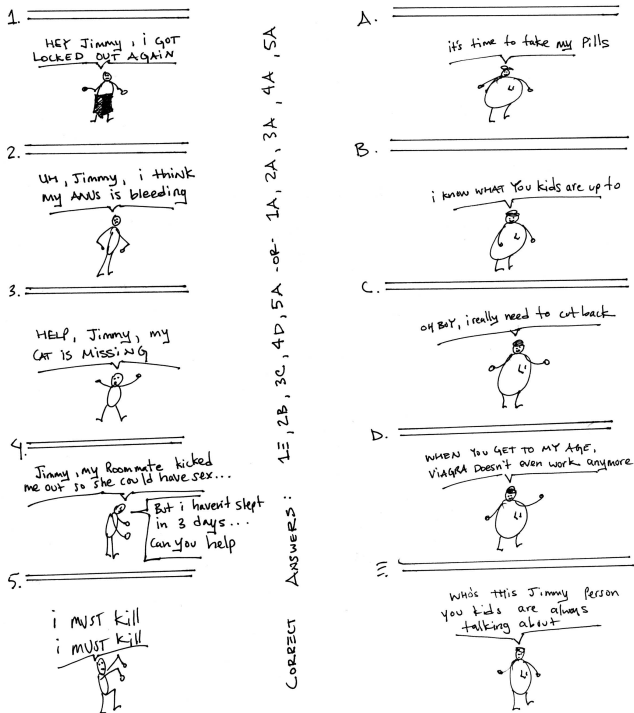 1.
HEY Jimmy, i GOT
LOCKED OUT AGAIN
2.
UH, Jimmy, i think
my ANUS is bleeding
3.
HELP, Jimmy, my
CAT is Missing
4.
Jimmy, my Roommate kicked
me out so she could have sex...
But i haven't slept
in 3 days...
can you help
5.
i MUST kill
i MUST kill
CORRECT ANSWERS: 1E, 2B, 3C, 4D, 5A -OR- 1A, 2A, 3A, 4A, 5A
A.
it's time to take my Pills
B.
i know WHAT You kids are up to
C.
OH BOY, i really need to cut back
D.
WHEN YOU GET TO MY AGE,
VIAGRA Doesn't even work anymore
E.
WHO'S this Jimmy Person
you kids are always
talking about